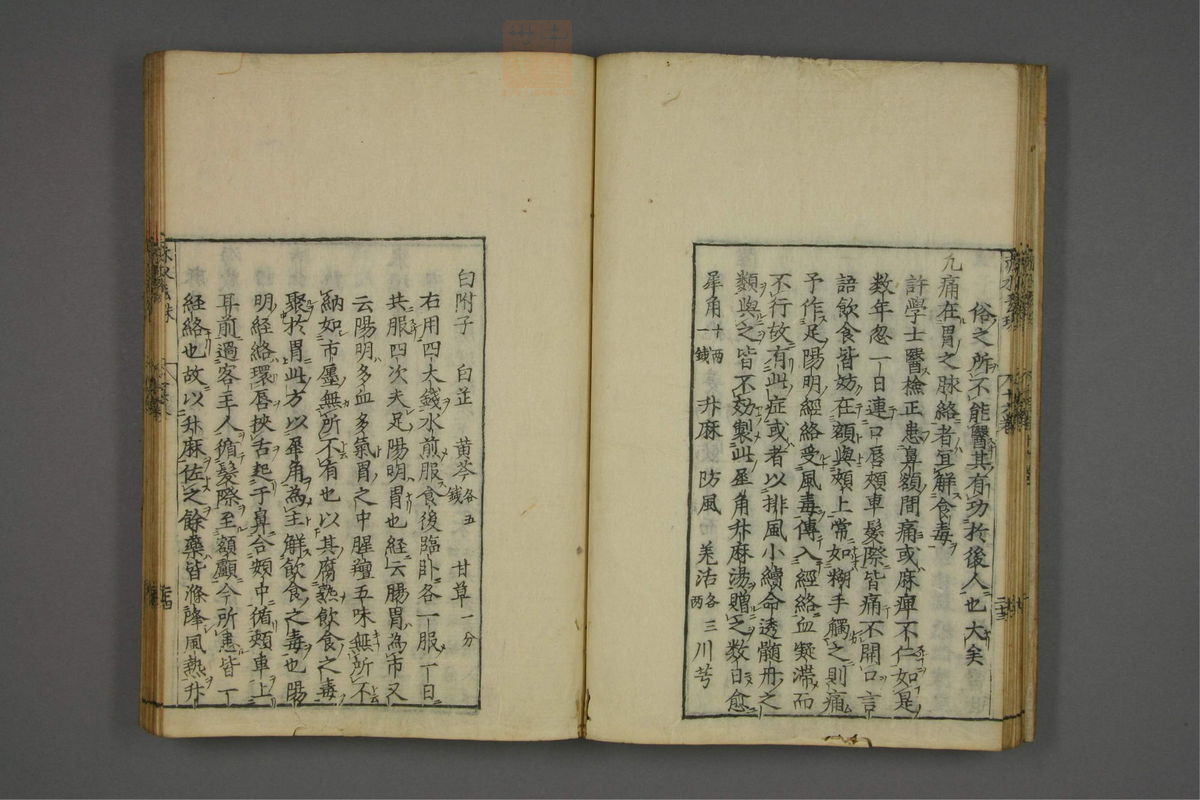 俗之所不能醫其有功於後人也大矣
九痛在胃之脉絡者冝解食毒
許學士醫檢正患鼻額間痛或麻痺不仁如是
数年忽一日連口唇頰車髮際皆痛不開口言
語飲食皆妨在額與頰上常如糊手觸之則痛
予作足陽明經絡受風毒傳入經絡血凝滞而
不行故有此症或者以排風小續命透髓丹之
類與之皆不効製此犀角升麻湯贈之数日愈
犀角十兩一錢 升麻 防風 羌活各三兩 川芎
白附子 白芷 黄芩各五錢 甘草一分
右用四大錢水煎服食後臨臥各一服一日
共服四次夫足陽明胃也経云腸胃為市又
云陽明多血多氣胃之中腥羶五味無所不
納如市廛無所不有也以其腐熟飲食之毒
聚於胃此方以犀角為主解飲食之毒也陽
明経絡環唇挾舌起于鼻合頰中循頰車上
耳前過客主人循髮際至額顱今所患皆一
経絡也故以升麻佐之餘藥皆滌降風熱升